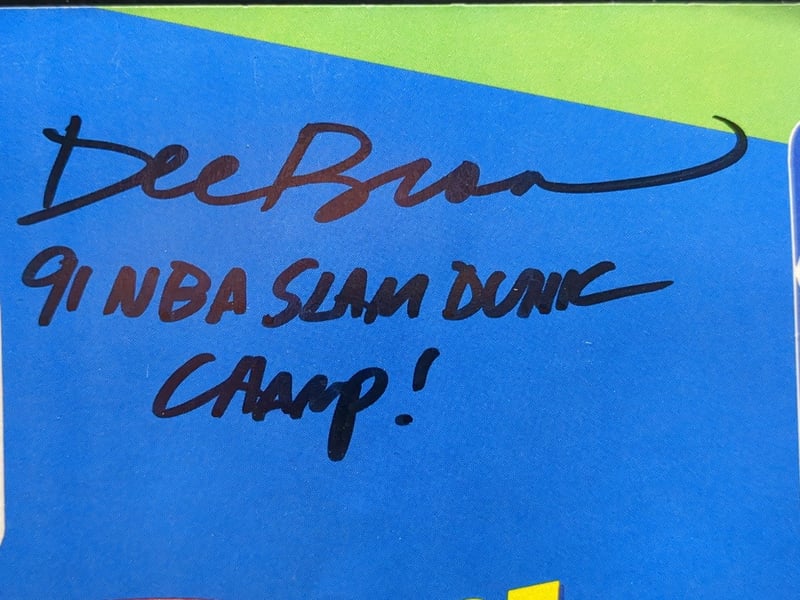 Dee Brown
91 NBA SLAM DUNK
CHAMP!